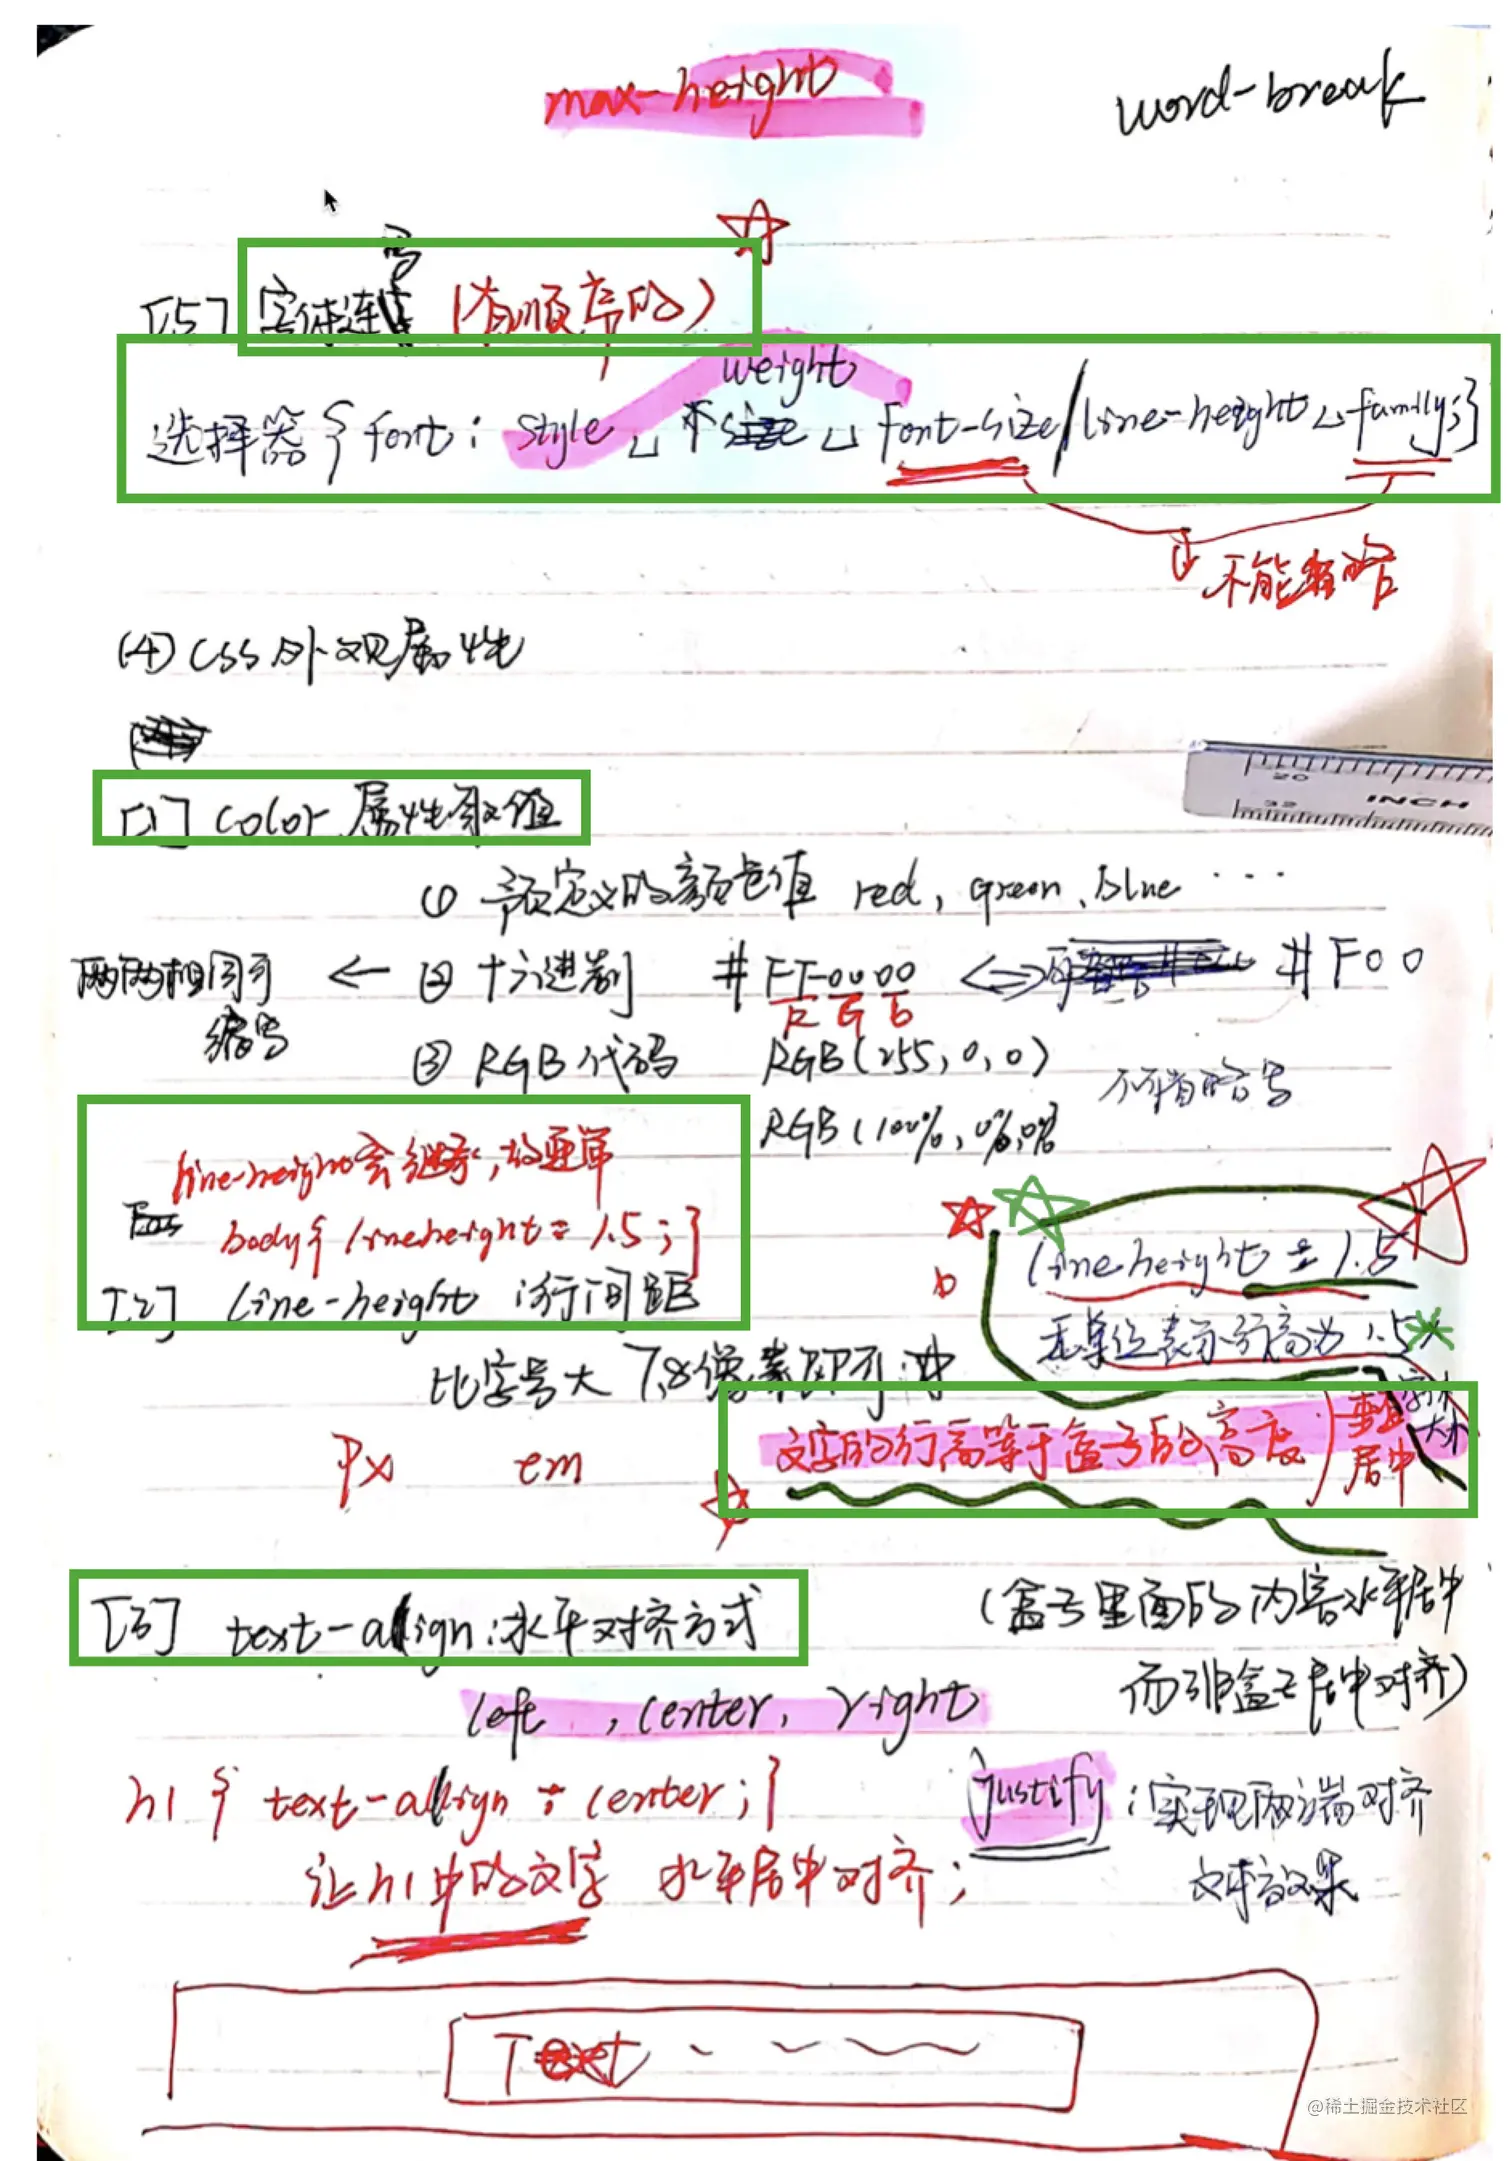 max-height
word-break
[5] 字体连写 (有顺序的)
weight
选择器 { font: style ␣ ␣ font-size/line-height ␣ family;}
不能省略
(4) CSS外观属性
[1] color 属性取值
① 预定义的颜色值 red, green, blue ...
两两相同可 ← ② 十六进制 #FF0000 ⟺ #F00
缩写
F G b
③ RGB代码 RGB(255,0,0)
不可省略%号
RGB(100%,0%,0%
line-height会继承,故要单
body{ lineheight = 1.5;}
lineheight = 1.5
[2] line-height:行间距
无单位表示行高为1.5×
字体
大小
比字号大7,8像素即可
文字的行高等于盒子的高度 垂直
居中
px em
[3] text-align:水平对齐方式
(盒子里面的内容水平居中
而非盒子居中对齐)
left , center, right
h1 { text-align = center;}
justify : 实现两端对齐
文本效果
让h1中的文字 水平居中对齐;
Text
20
32 INCH
@稀土掘金技术社区